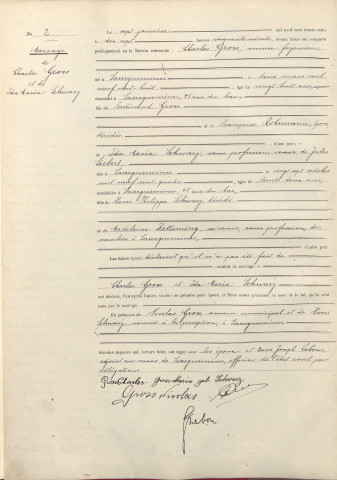 No 2
Mariage
de
Charles Gross
et de
Ida Maria Schwarz
Le sept janvier mil neuf cent trente
à dix sept heures cinquante minutes, devant Nous ont comparu
publiquement en la Maison commune : Charles Gross, ouvrier fayencier
né à Sarreguemines le deux mars mil
neuf cent huit, âgé de vingt
domicilié à Sarreguemines, 45 rue du bac,
fils de Ferdinand Gross
et de Françoise Lohmann
décédés
et Ida Maria Schwarz, sans profession, veuve de Jules
Siebert
née à Sarreguemines le vingt sept octobre
mil neuf cent quatre, âgée de
domiciliée à Sarreguemines, 45 rue du bac,
fille de Henri Philippe Schwarz décédé
et de Madeleine Hettaming sa veuve, sans profession, do-
miciliée à Sarreguemines
d'autre part.
Les futurs époux déclarent qu'il n'a pas été fait de
contrat de mariage.
Charles Gross et Ida Maria Schwarz
ont déclaré, l'un après l'autre, vouloir se prendre pour époux, et Nous avons prononcé, au nom de la loi, qu'ils sont
unis par le mariage.
En présence de Nicolas Gross, ouvrier municipal et de
Schwarz, à Sarreguemines
témoins majeurs qui, lecture faite, ont signé avec les époux et Nous Joseph Nebon,
adjoint au maire de Sarreguemines, officier de l'état civil par
délégation.
Gross Charles Gross Maria geb. Schwarz
Gross Nicolas
Nebon